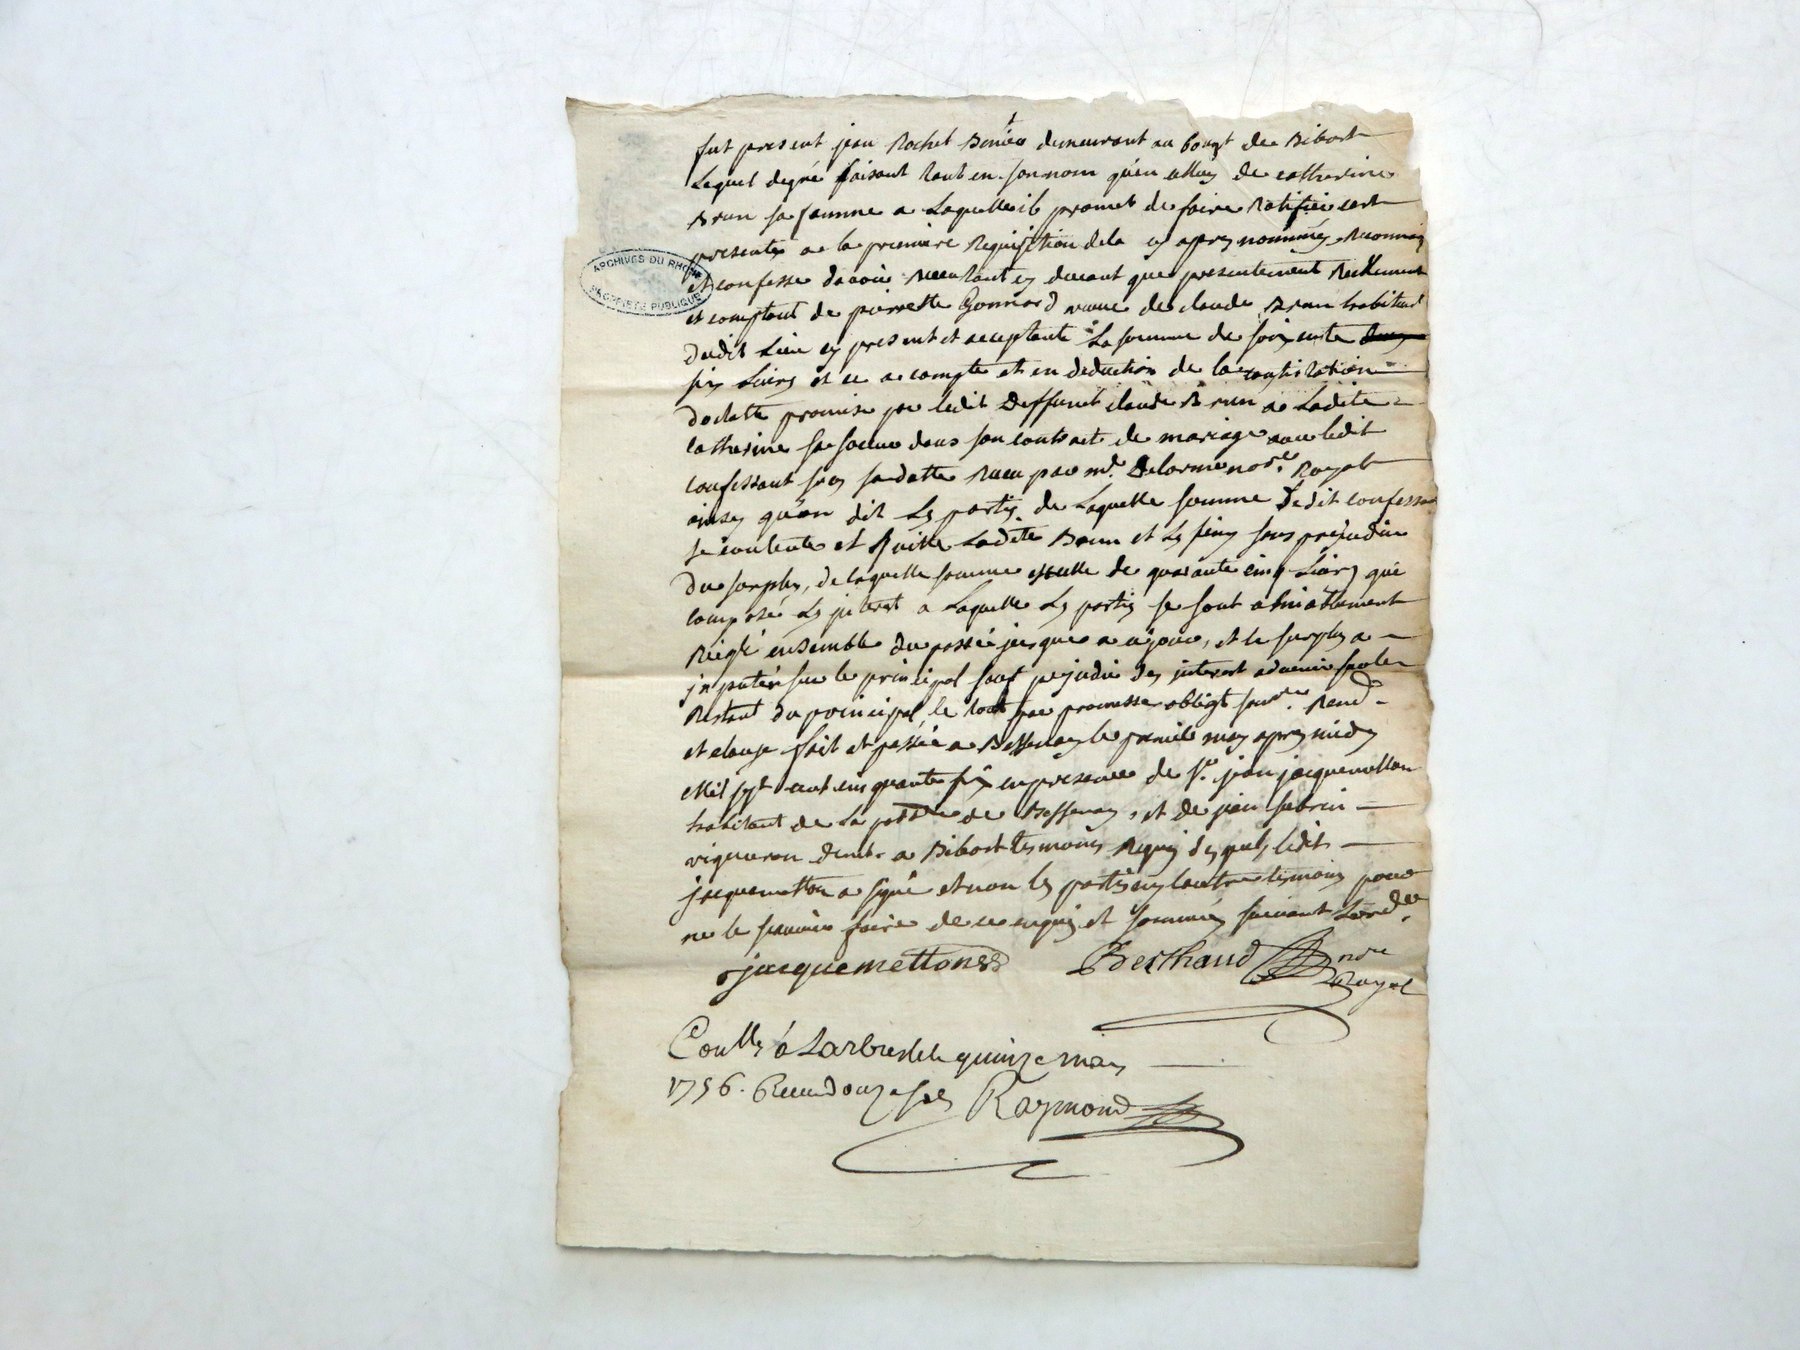 fut present jean Rochet demeurant au bourg de Bibost
Lequel degré faisant tant en son nom qu'en celluy de catherine
Brun sa femme a Laquelle il promet de faire Ratifier cest
presentes a la premiere Requisition de la cy apres nommée, Reconnoit
et confesse davoir Receu tant cy devant que presentement Reellement
et comptant de pierrette Gonnard veuve de claude Brun habitant
dudit Lieu cy present et acceptante La somme de soixante
six Livres et ce a compte et en deduction de la constitution
dotalle promise par ledit deffunct claude Brun a Ladite
Catherine sa soeur dans son contract de mariage avec ledit
confessant sous sa datte Receu par me. Delorme nore. Royal
ainsy qu'on dit Les partis de Laquelle somme Ledit confessant
se contente et Quitte Ladite Brun et Les siens sans prejudice
du surplus, de laquelle somme de quarante cinq Livres qui
composé Les interest a Laquelle Les partis se sont amiablement
Reiglé ensemble du passé jusque a ce jour, et le surplus a
imputer sur le principal sauf prejudice des interest advenir sur le
Restant du principal, le tout par promesse obligt. Rend.
et clause fait et passé a Bessenay le premier may apres midy
Mil sept cent cinquante six en presence de Sr. jean jacquemetton
habitant de La parroisse de Bessenay, et de jean
vigneron demt. a Bibost temoins Requis desquels ledit
jacquemetton a signé et non les partis ny lautre temoin pour
ne le scavoir faire de ce enquis et sommés suivant Lordce.
jacquemetton Berthaud nore
Royal
Conllé à Larbresle le quinze may
1756. Receu douze sols Raymond
ARCHIVES DU RHÔNE
PROPRIÉTÉ PUBLIQUE